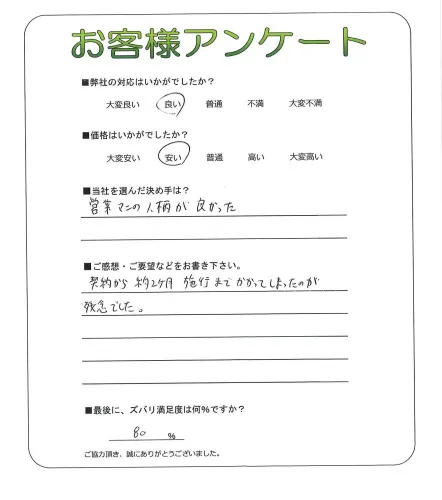 お客様アンケート
■弊社の対応はいかがでしたか？
大変良い 良い 普通 不満 大変不満
■価格はいかがでしたか？
大変安い 安い 普通 高い 大変高い
■当社を選んだ決め手は？
営業マンの人柄が良かった
■ご感想・ご要望などをお書き下さい。
契約から約2ヶ月施行までかかってしまったのが
残念でした。
■最後に、ズバリ満足度は何%ですか？
80 %
ご協力頂き、誠にありがとうございました。